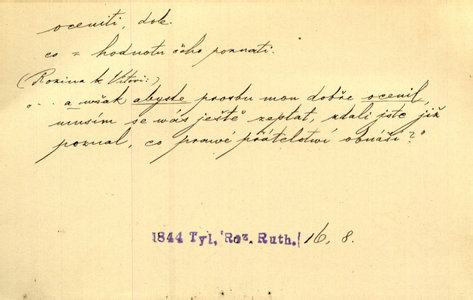 oceniti, dok.
co = hodnotu čeho poznati.
(Rozina k Vítovi:)
"... a však abyste prosbu mou dobře ocenil,
musím se vás ještě zeptat, zdali jste již
poznal, co prawé přátelstwí obnáší?"
1844 Tyl, Roz. Ruth. 16, 8.